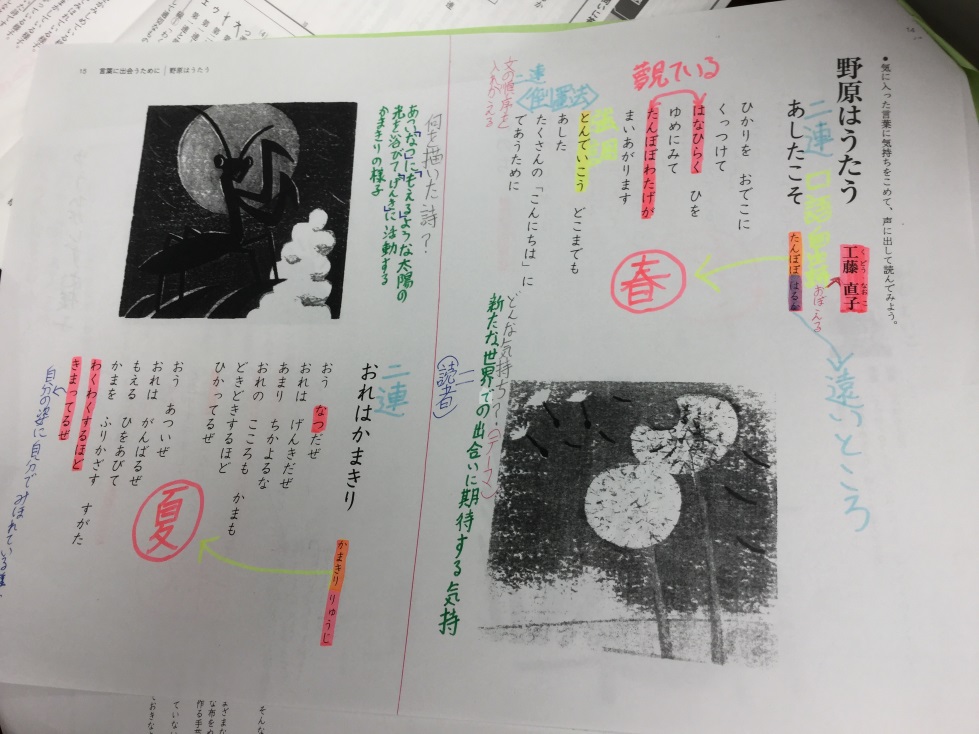 ●気に入った言葉に気持ちをこめて、声に出して読んでみよう。
野原はうたう
工藤 直子
くどう なおこ
おぼえる
二連
あしたこそ
たんぽぽ はるか
遠いところ
ひかりを おでこに
くっつけて
はなひらく ひを
ゆめにみて
たんぽぽわたげが
まいあります
観ている
二連
〈倒置法〉
文の順序を
入れかえる
とんでいこう どこまでも
あした
たくさんの「こんにちは」に
であうために
春
どんな気持ち?(テーマ)
新たな世界での出合いに期待する気持
(読者)
何を描いた詩?
あつい「なつ」に「もえる」ような太陽の
光を浴びて「げんき」に活動する
かまきりの様子
二連
おれはかまきり
かまきり りゅうじ
おう なつだぜ
おれは げんきだぜ
あまり ちかよるな
おれの こころも かまも
どきどきするほど
ひかってるぜ
おう あついぜ
おれは がんばるぜ
もえる ひをあびて
かまを ふりかざす すがた
わくわくするほど
きまってるぜ
夏
自分の姿に自分でみほれている
15 言葉に出会うために | 野原はうたう